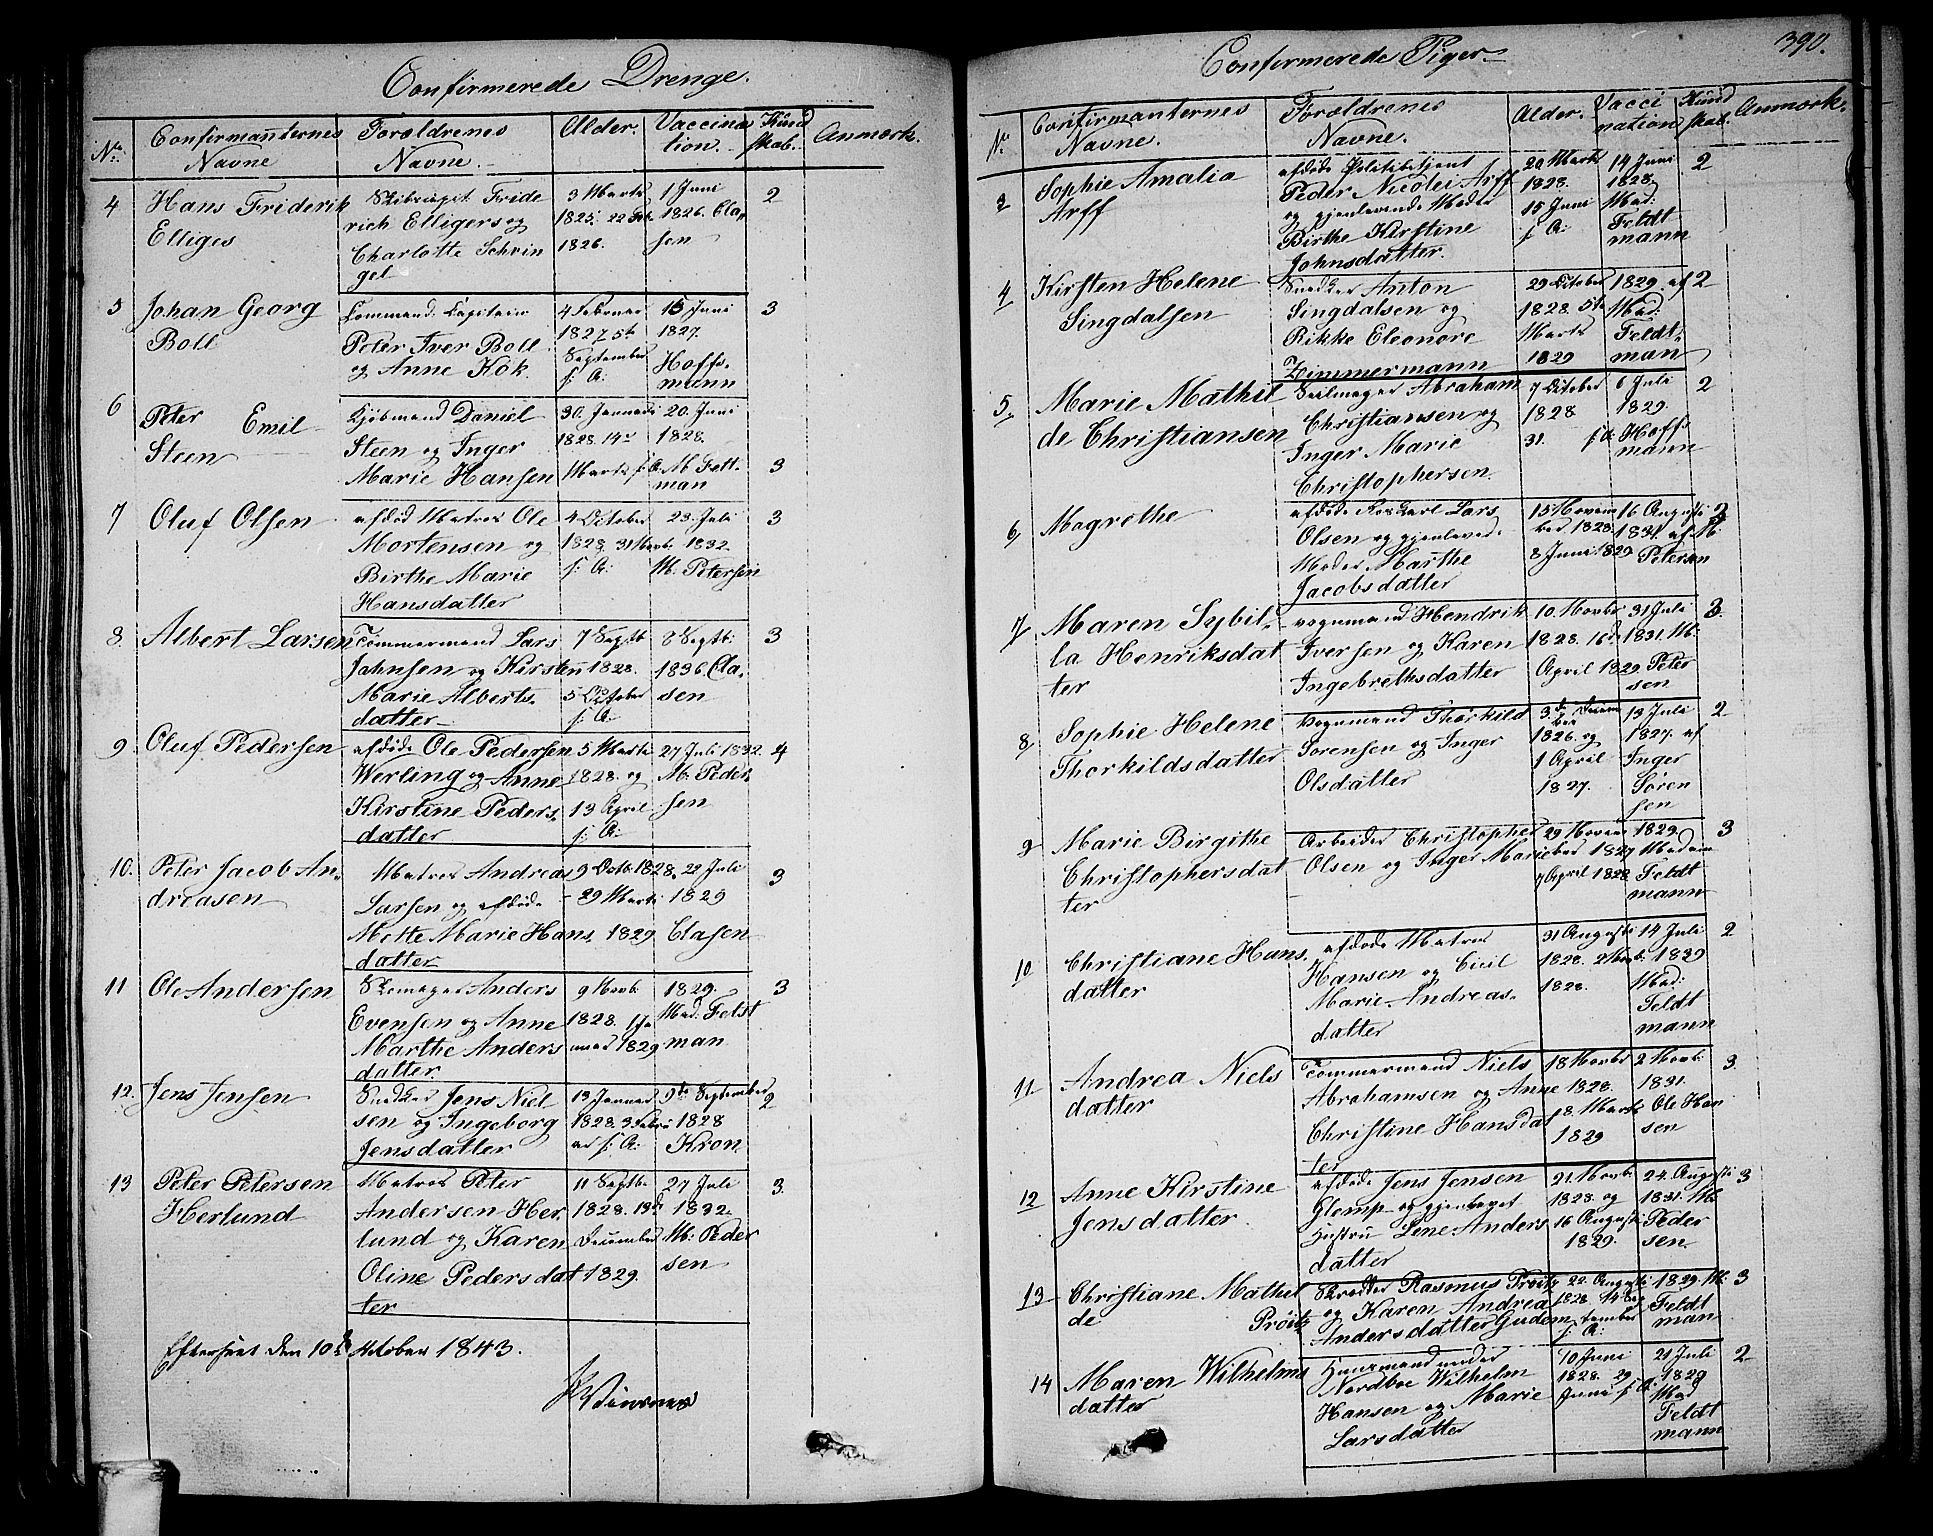 Confirmerede Drenge.
No. Confirmanternes Navne
Forældrenes Navne.
Alder.
Vaccination.
Kundskab.
Anmærk.
4
Hans Friderik
Elliges
Skibscapt. Fride
rich Elligers og
Charlotte Schvin
gel
3 Marts
1825. 22
1826.
1 Juni
1826. Cla,
sen
2
5
Johan Georg
Boll
Command. Capitain
Peter Iver Boll
og Anne Kok.
4 Februar
1827, 5te
September
s: A:
15 Juni
1827.
Hoff,
mann
3
6
Peter Emil
Steen
Kjøbmand Daniel
Steen og Inger
Marie Hansen
30. Januar
1828. 14de
Marts s. A.
20. Juni
1828.
M Felt-
man
3
7
Oluf Olsen
afdød Matros Ole
Mortensen og
Birthe Marie
Hansdatter
4 October
1828, 31 Marts
s: A:
23. Juli
1832
M: Petersen
3
8.
Albert Larsen
Tømmermand Lars
Jahnsen og Kirsten
Marie Alberts,
datter
7 Septb
1828.
5 October
s: A:
8 Septb:
1836. Cla,
sen
3
9
Oluf Pedersen
afdøde Ole Pedersen
Werling og Anne
Kirstine Peders,
datter
5 Marts
1828 og
13 April
s: A:
27 Juli 1832.
M. Peder,
sen
4
10.
Peter Jacob An,
dreasen
Matros Andreas
Larsen og afdøde
Mette Marie Hans,
datter
9 Octb. 1828,
29 Marts
1829
22 Juli
1829
Clasen
3
11
Ole Andersen
Skomager Anders
Evensen og Anne
Marthe Anders
datter.
9 Novb.
1828. 1 Ja
nuar 1829
1829.
Mad. Felst
man
3
12.
Jens Jensen
Snedker Jens Niel
sen og Ingeborg
Jensdatter
13 Januar
1828. 3 Febru
ar s: A:
9de September
1828
Kron
2
13
Peter Petersen
Herlund
Matros Peter
Andersen Her,
lund og Karen
Oline Pedersdat
ter
11 Septb:
1828. 13d
December
1829.
27 Juli
1832.
M: Peder
sen
3.
Efterseet den 10de October 1843.

Confirmerede Piger
390.
No.
Confirmanternes
Navne.
Forældrenes
Navne.
Alder.
Vacci
nation
Kund
skab.
Anmærk.
3
Sophie Amalia
Arff
afdøde Politibetjent
Peder Nicolei Arff
og gjenlevende Moder
Birthe Kirstine
Johnsdatter.
20 Marts
1828.
15 Juni
s: A:
14 Juni
1828.
Mad:
Feldt
mann
2
4
Kirsten Helene
Singdalsen
Snedker Anton
Singdalsen og
Rikke Eleonore
Zimmermann
29 October
1828. 5te
Marts
1829
1829. af
Mad:
Feldt,
man
2
5
Marie Mathil
de Christiansen
Seilmager Abraham
Christiansen og
Inger Marie
Christophersen.
7 October
1828
31. s A:
6 Juli
1829.
Hoff,
mann
2
6
Magrethe
afdøde Lars
Olsen og gjenlevend.
Moder Marthe
Jacobsdatter
15 Novem
ber 1828.
8 Juni 1829
16 Augusti
1831. af M
Petersen
2
7
Maren Sybil,
la Henriksdat
ter
vognmand Hendrik
Iversen og Karen
Ingebrethsdatter
10. Novbr
1828. 16d
April 1829
31 Juli
1831. M:
Peter
sen
3.
8
Sophie Helene
Thorkildsdatter
Vognmand Thorkild
Sørensen og Inger
Olsdatter
3.de Decem
ber
1826. og
1 April
1827.
13 Juli
1827. af
Inger
Søren
sen
2
9
Marie Birgithe
Christophersdat
ter
Arbeider Christopher
Olsen og Inger Marie
29 Novem
ber 1827
7 April 1828
1829.
Madam
Feldt
mann
3
10
Christiane Hans,
datter
afdøde Matros
Hansen og Cicil
Marie Andreas,
datter
31 Augusti
1828. 2 Novb:
1828.
14 Juli
1829
Mad:
Feldt
mann
2
11
Andrea Niels
datter
Tømmermand Niels
Abrahamsen og Anne
Christine Hansdat
ter
18 Novbr
1828.
8 Marts
1829
2 Novb.
1831.
Ole Han
sen
3
12
Anne Kirstine
Jensdatter
afdøde Jens Jensen
Glemp og gjenlevet
Hustru Lene Anders
datter
21 Novbr
1828 og
16 Augusti
1829.
24. Augusti
1831. M.
Peder
sen.
3
13
Christiane Mathil
de Pröitz
Skræder Rasmus Pröitz
og Karen Andrea
Andersdatter Gudem
22. Augusti
1828. 14 Sep
tember
s: A:
1829. M:
Feldt
man
3
14
Maren Wilhelms
datter
Huusmand under
Nordbøe Wilhelm
Hansen og Marie
Larsdatter
10 Juni
1828. 29
Juni s. A.
21 Juli
1829
Mad
Feldt
mann
2